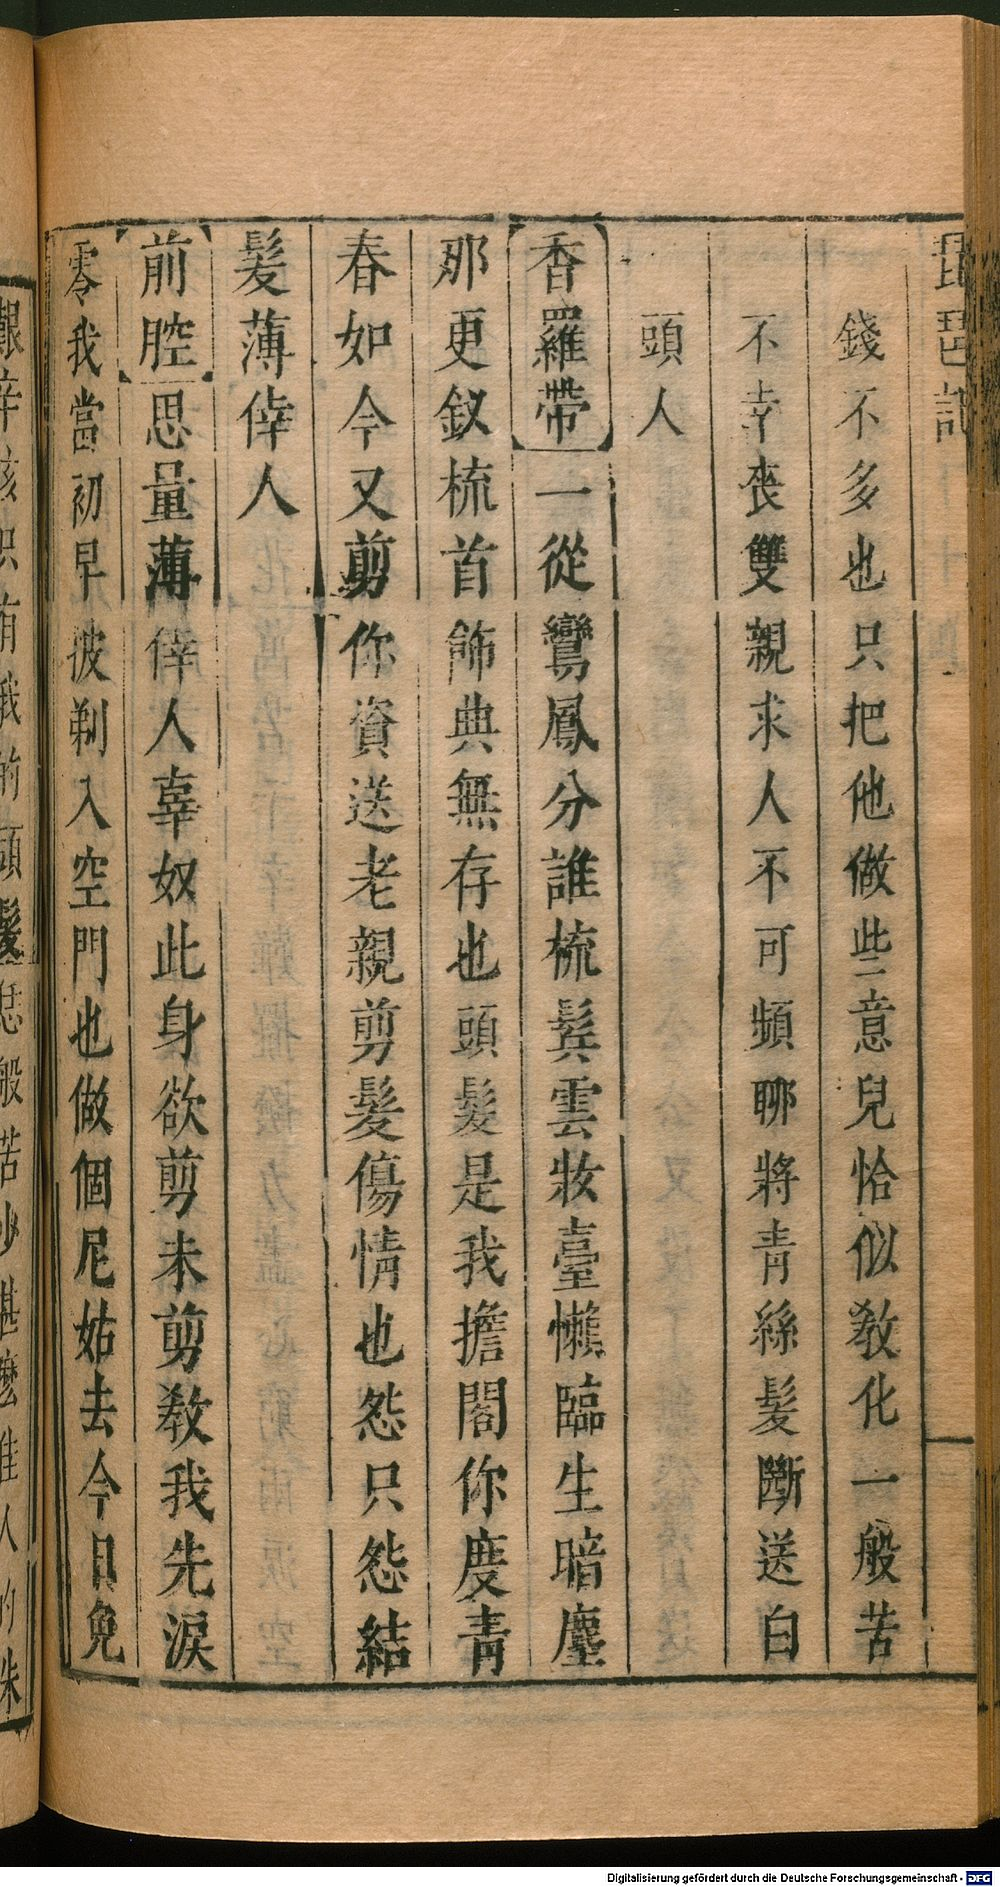 琵琶記
錢不多也只把他做些意兒恰似教化一般苦
不幸喪雙親求人不可頻聊將青絲髮斷送白
頭人
香羅帶一從鸞鳳分誰梳鬂雲妝臺懶臨生暗塵
那更釵梳首飾典無存也頭髮是我擔閣你度青
春如今又剪你資送老親剪髮傷情也怨只怨結
髮薄倖人
前腔思量薄倖人辜奴此身欲剪未剪教我先淚
零我當初早披剃入空門也做個尼姑去今日免
艱辛 有我的頭髮恁般苦少甚麼佳人的珠
Digitalisierung gefördert durch die Deutsche Forschungsgemeinschaft - DFG